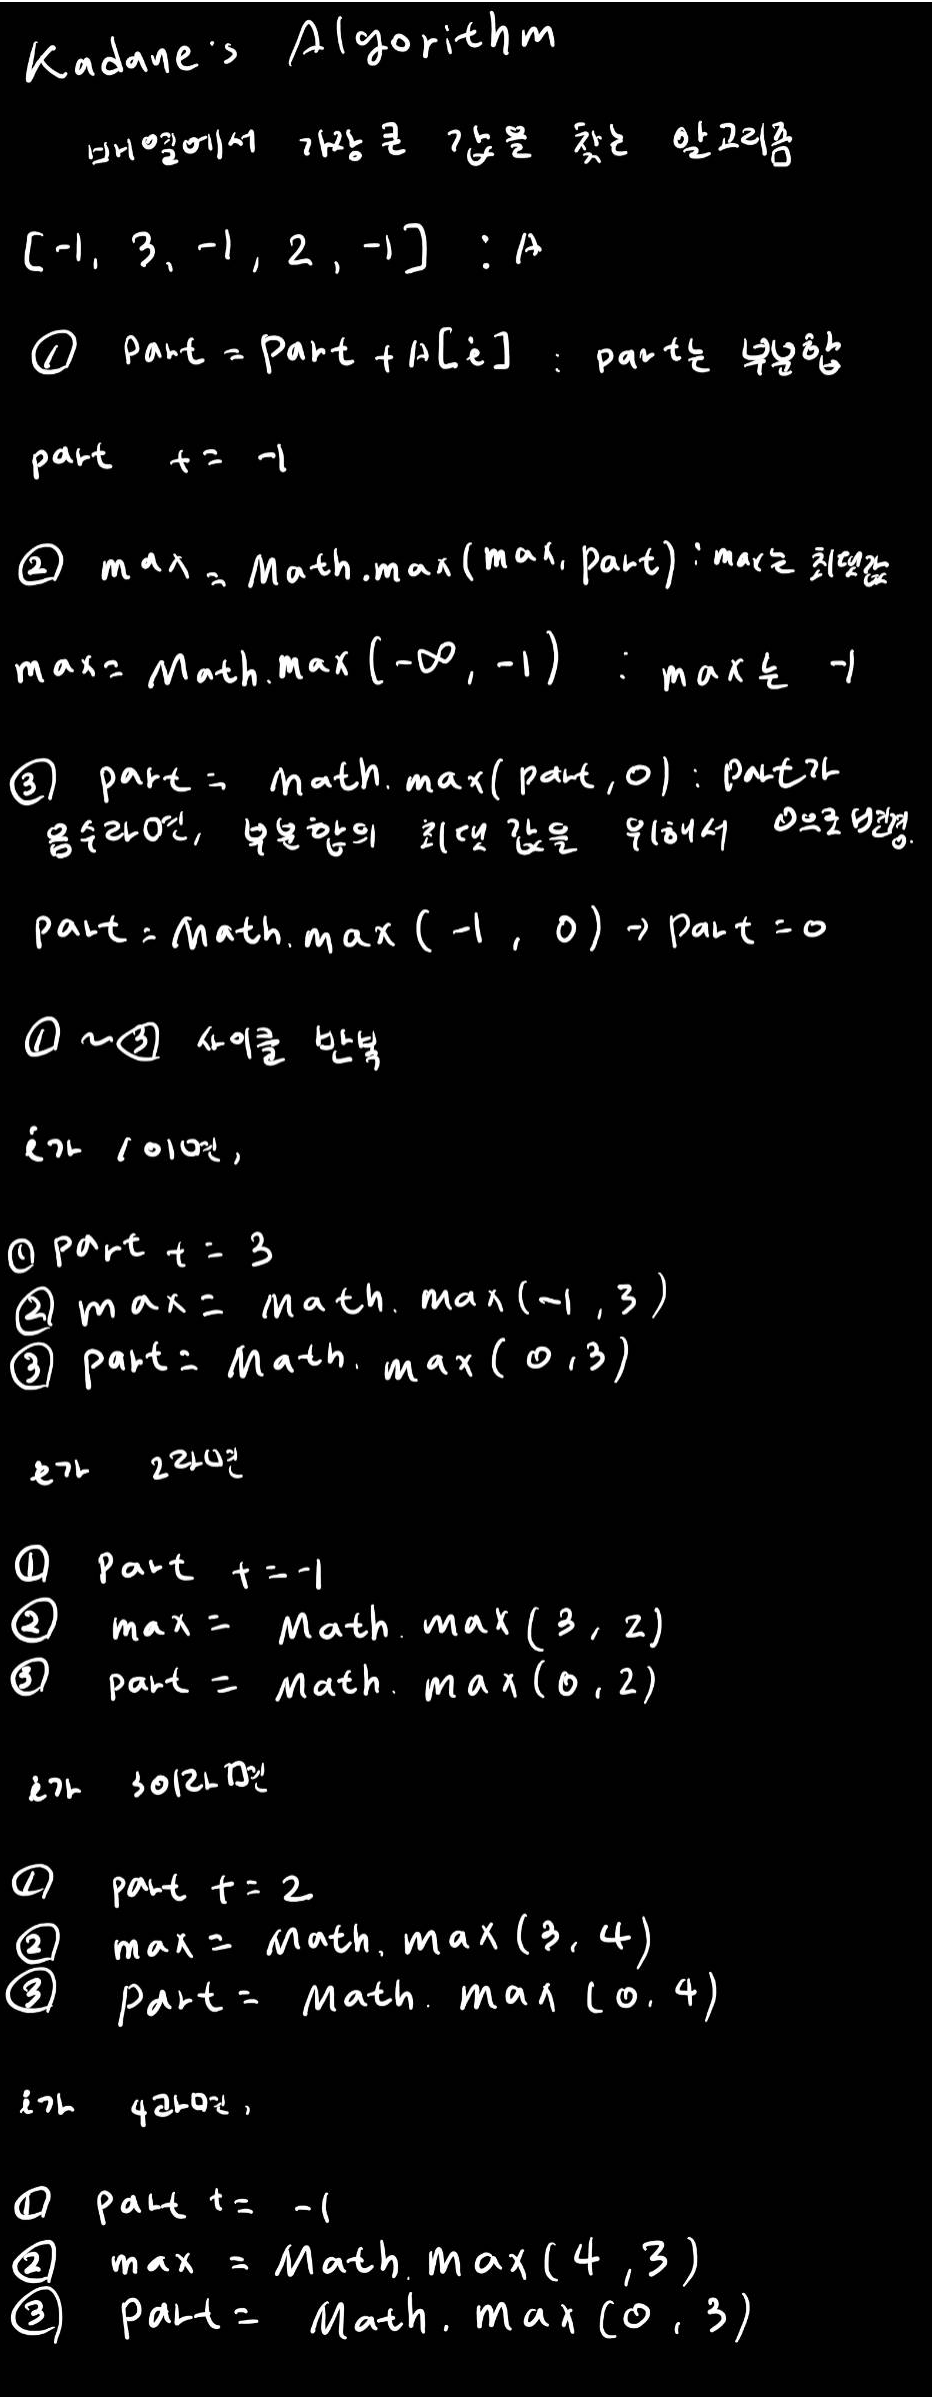 Kadane's Algorithm
배열에서 가장 큰 값을 찾는 알고리즘
[-1, 3, -1, 2, -1] : A
① Part = Part + A[i] : part는 부분합
part += -1
② max = Math.max(max, part) : max는 최댓값
max = Math.max(-∞, -1) : max는 -1
③ part = Math.max(part, 0) : part가
음수라면, 부분합의 최댓값을 위해서 0으로 변경.
part = Math.max(-1, 0) → part = 0
① ~ ③ 사이클 반복
i가 1이면,
① part += 3
② max = Math.max(-1, 3)
③ part = Math.max(0, 3)
i가 2라면
① Part += -1
② max = Math.max(3, 2)
③ part = Math.max(0, 2)
i가 3이라면
① part += 2
② max = Math.max(3, 4)
③ Part = Math.max(0, 4)
i가 4라면,
① part += -1
② max = Math.max(4, 3)
③ part = Math.max(0, 3)